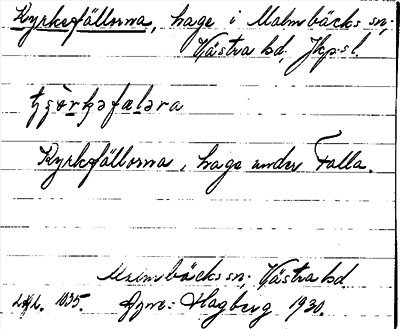 Kyrkefällorna, hage i Malmbäcks sn;
Västra hd, Jkp.s l.
Kyrkefällorna, hage under Falla.
Malmbäcks sn; Västra hd
1035. Hagberg 1930.